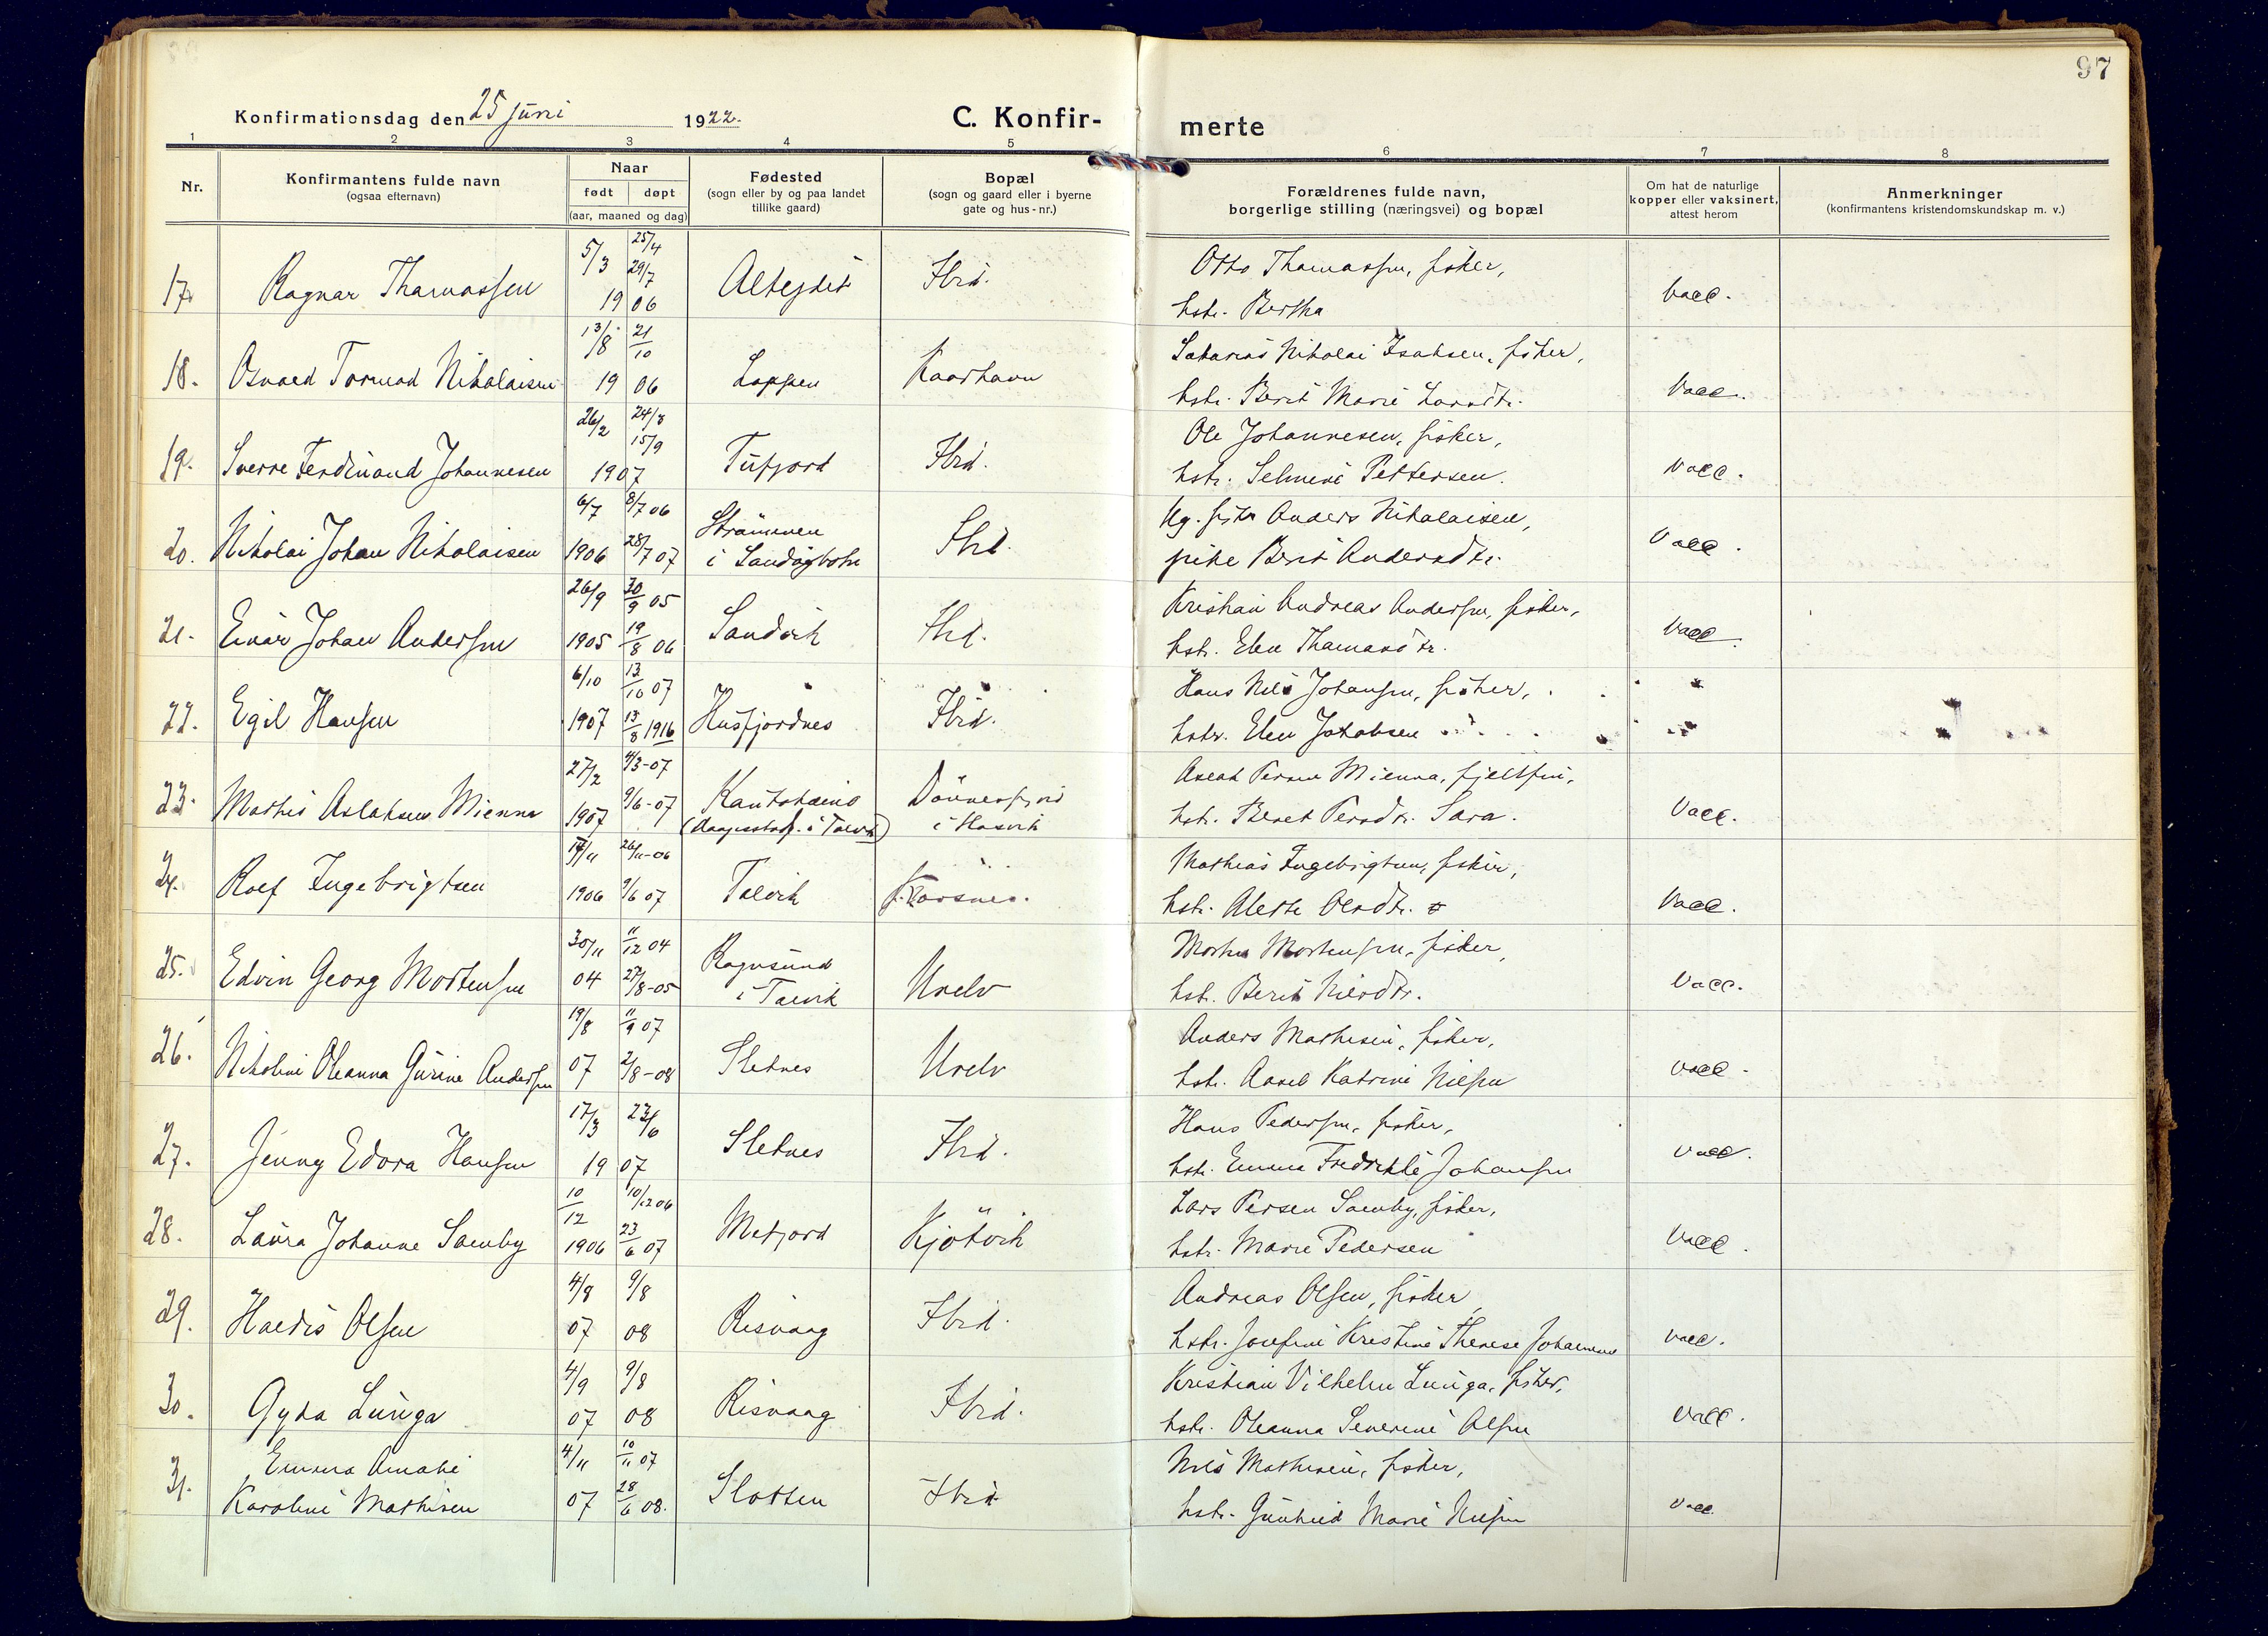 97
Konfirmationsdag den 25 juni 1922.
C. Konfir-
merte
1 2 3 4 5 6 7 8
Nr.
Konfirmantens fulde navn
(ogsaa efternavn)
Naar
født døpt
(aar, maaned og dag)
Fødested
(sogn eller by og paa landet
tillike gaard)
Bopæl
(sogn og gaard eller i byerne
gate og hus-nr.)
Forældrenes fulde navn,
borgerlige stilling (næringsvei) og bopæl
Om hat de naturlige
kopper eller vaksinert,
attest herom
Anmerkninger
(konfirmantens kristendomskundskap m. v.)
17. Ragnar Thomassen 5/3 25/4 29/7 1906 Alteidet Ibid.
Otto Thomassen, fisker,
hstr. Bertha
vacc.
18. Osvald Tormod Nikolaisen 13/8 21/10 1906 Loppen Kaarhavn
Sakarias Nikolai Isaksen, fisker,
hstr. Berit Marie Larsdtr.
Vacc.
19. Sverre Ferdinand Johannesen 26/2 24/3 15/9 1907 Tufjord Ibid.
Ole Johannesen, fisker,
hstr. Selmine Pettersen.
Vacc.
20. Nikolai Johan Nikolaisen 6/7 1906 8/7 06 28/7 07 Strömmen
i Sandøybotn Ibid.
Ug. fisker Anders Nikolaisen,
pike Berit Andersdtr.
Vacc.
21. Einar Johan Andersen 26/9 1905 30/9 05 19/8 06 Sandvik Ibid.
Kristian Andreas Andersen, fisker,
hstr. Elen Thomasdtr.
Vacc.
22. Egil Hansen 6/10 1907 13/10 07 13/8 1916 Husfjordnes Ibid.
Hans Nils Johansen, fisker,
hstr. Elen Jakobsen
23. Mathis Aslaksen Mienna 27/2 1907 4/3-07 9/6-07 Kautokeino
i Talvik) Dönnesfjord
i Hasvik
Aslak Persen Mienna, fjellfin,
hstr. Beret Persdtr. Sara.
Vacc.
24. Rolf Ingebrigtsen 1906 26/11-06 9/6 07 Talvik Korsnes.
Mathias Ingebrigtsen, fisker,
hstr. Alette Olsdtr.
Vacc.
25. Edvin Georg Mortensen 30/11 04 11/12 04 27/8-05 Rognsund
i Talvik Urelv
Morten Mortensen, fisker,
hst. Berit Nilsdtr.
Vacc.
26. Nikoline Oleanna Gurine Andersen 19/8 07 11/9 07 2/8-08 Sletnes Urelv
Anders Mathisen, fisker,
hstr. Aasel Katrine Nilsen
vacc.
27. Jenny Edora Hansen 17/3 23/6 1907 Sletnes Ibid.
Hans Pedersen, fisker,
hstr. Emma Fredrikke Johansen
vacc.
28. Laura Johanne Samby 10/12 1906 10/12 06 23/6 07 Mefjord Kjötvik
Lars Persen Samby, fisker,
hstr. Marie Pedersen
Vacc.
29. Haldis Olsen 4/8 07 9/8 08 Risvaag Ibid.
Andreas Olsen, fisker,
hstr. Josefine Kristine Therese Johannesen
vacc.
30. Gyda Lunga 4/9 07 9/8 08 Risvaag Ibid.
Kristian Vilhelm Lunga, fisker,
hstr. Oleanna Severine Olsen
Vacc.
31. Emma Amalie
Karoline Mathisen 4/11 07 10/11 07 28/6 08. Slotten Ibid.
Nils Mathisen, fisker,
hstr. Gunhild Marie Nilsen
Vacc.